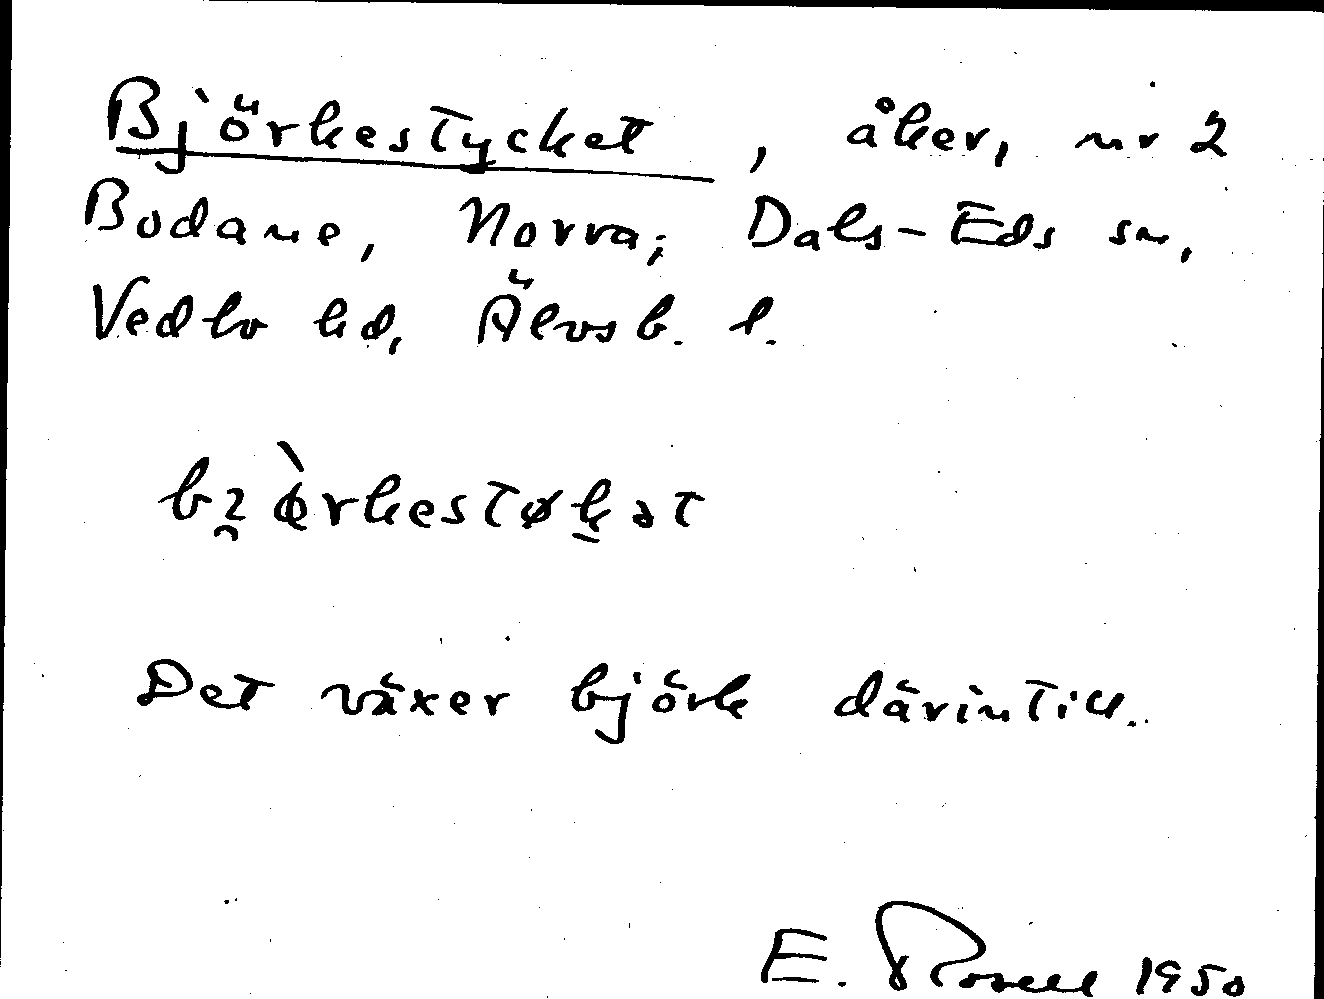 Björkestycket, åker, nr 2
Bodane, Norra; Dals-Eds sn,
Vedbo hd, Älvsb. l.
Det växer björk därintill.
E. Rosell 1950